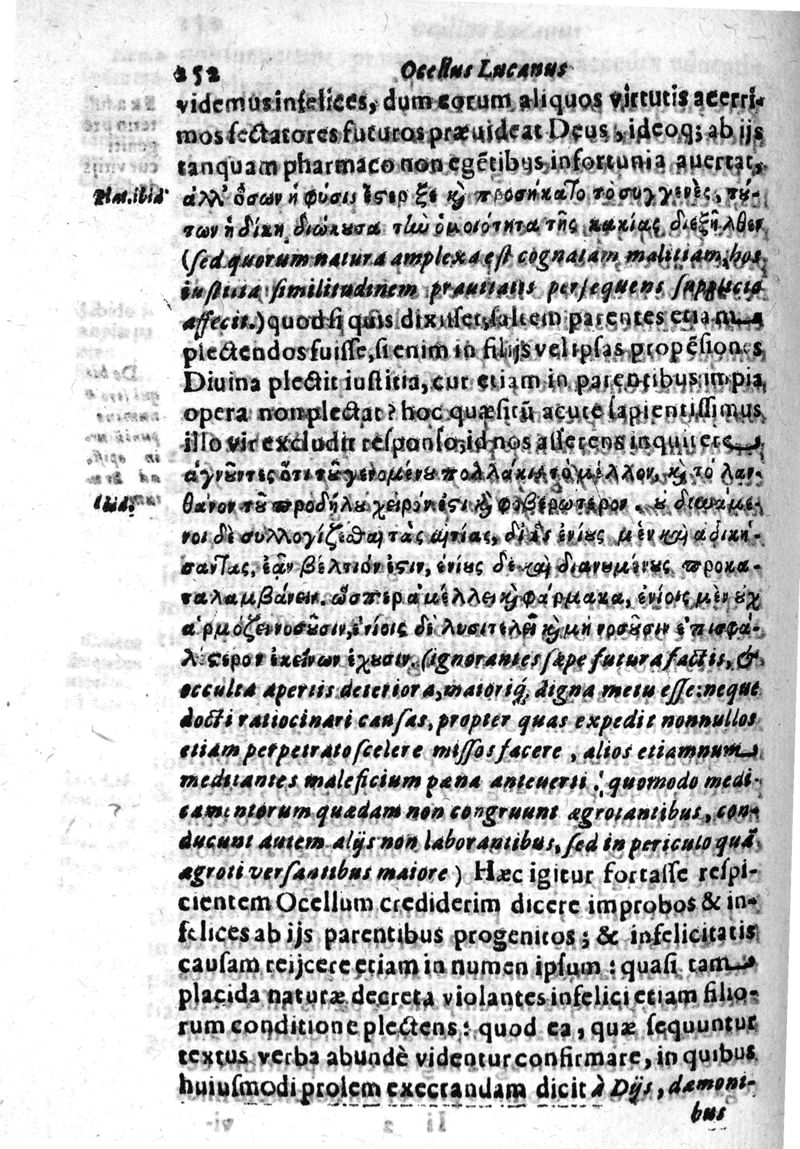 252 Ocellus Lucanus
videmus infelices, dum eorum aliquos virtutis acerri-
mos sectatores futuros præuideat Deus, ideoq; ab ijs
tanquam pharmaco non egētibus infortunia auertat,
Plat. ibid
ἀλλ' ὅσων ἡ φύσις ἔστερξε κὶ προσήκατο τὸ συγγενὲς, τού-
των ἡ δίκη διώκουσα τὴν ὁμοιότητα τῆς κακίας διεξῆλθεν
(sed quorum natura amplexa est cognatam malitiam, hos
iustitia similitudinem prauitatis persequens supplicio
affecit.) quod si quis dixisset, saltem parentes etiam
plectendos fuisse, si enim in filijs vel ipsas propēsiones
Diuina plectit iustitia, cur etiam in parentibus impia
opera non plectat? hoc quæsitū acute sapientissimus
illo vir excludit responso, id nos asserens inquirere
ἀγνοῦντες ὅτι τοῦ γενομένου πολλάκις τὸ μέλλον, κὶ τὸ λαν-
Ibid.
θάνον τοῦ προδήλου χεῖρόν ἐστι κὶ φοβερώτερον. οὐ δυναμε-
νοι δὲ συλλογίζεσθαι τὰς αἰτίας, δι' ἃς ἐνίους μὲν καὶ ἀδική-
σαντας, ἐᾶν βέλτιόν ἐστιν, ἐνίους δὲ καὶ διανουμένους προκα-
ταλαμβάνειν. ὥσπερ ἀμέλλει κὶ φάρμακα, ἐνίοις μὲν οὐχ
ἁρμόζει νοσοῦσιν, ἐνίοις δὲ λυσιτελεῖ κὶ μὴ νοσοῦσιν ἐπισφα-
λέστερον ἐκείνων ἔχουσιν. (ignorantes sæpe futura factis, &
occulta apertis deteriora, maioriq; digna metu esse: neque
docti ratiocinari causas, propter quas expedit nonnullos
etiam perpetrato scelere missos facere, alios etiamnum
meditantes maleficium pœna anteuerti; quomodo medi-
camentorum quædam non congruunt ægrotantibus, con-
ducunt autem alijs non laborantibus, sed in periculo quā
ægroti versantibus maiore) Hæc igitur fortasse respi-
cientem Ocellum crediderim dicere improbos & in-
felices ab ijs parentibus progenitos; & infelicitatis
causam reijcere etiam in numen ipsum: quasi tam
placida naturæ decreta violantes infelici etiam filio-
rum conditione plectens: quod ea, quæ sequuntur
textus verba abundè videntur confirmare, in quibus
huiusmodi prolem execrandam dicit à Dijs, dæmoni-
bus